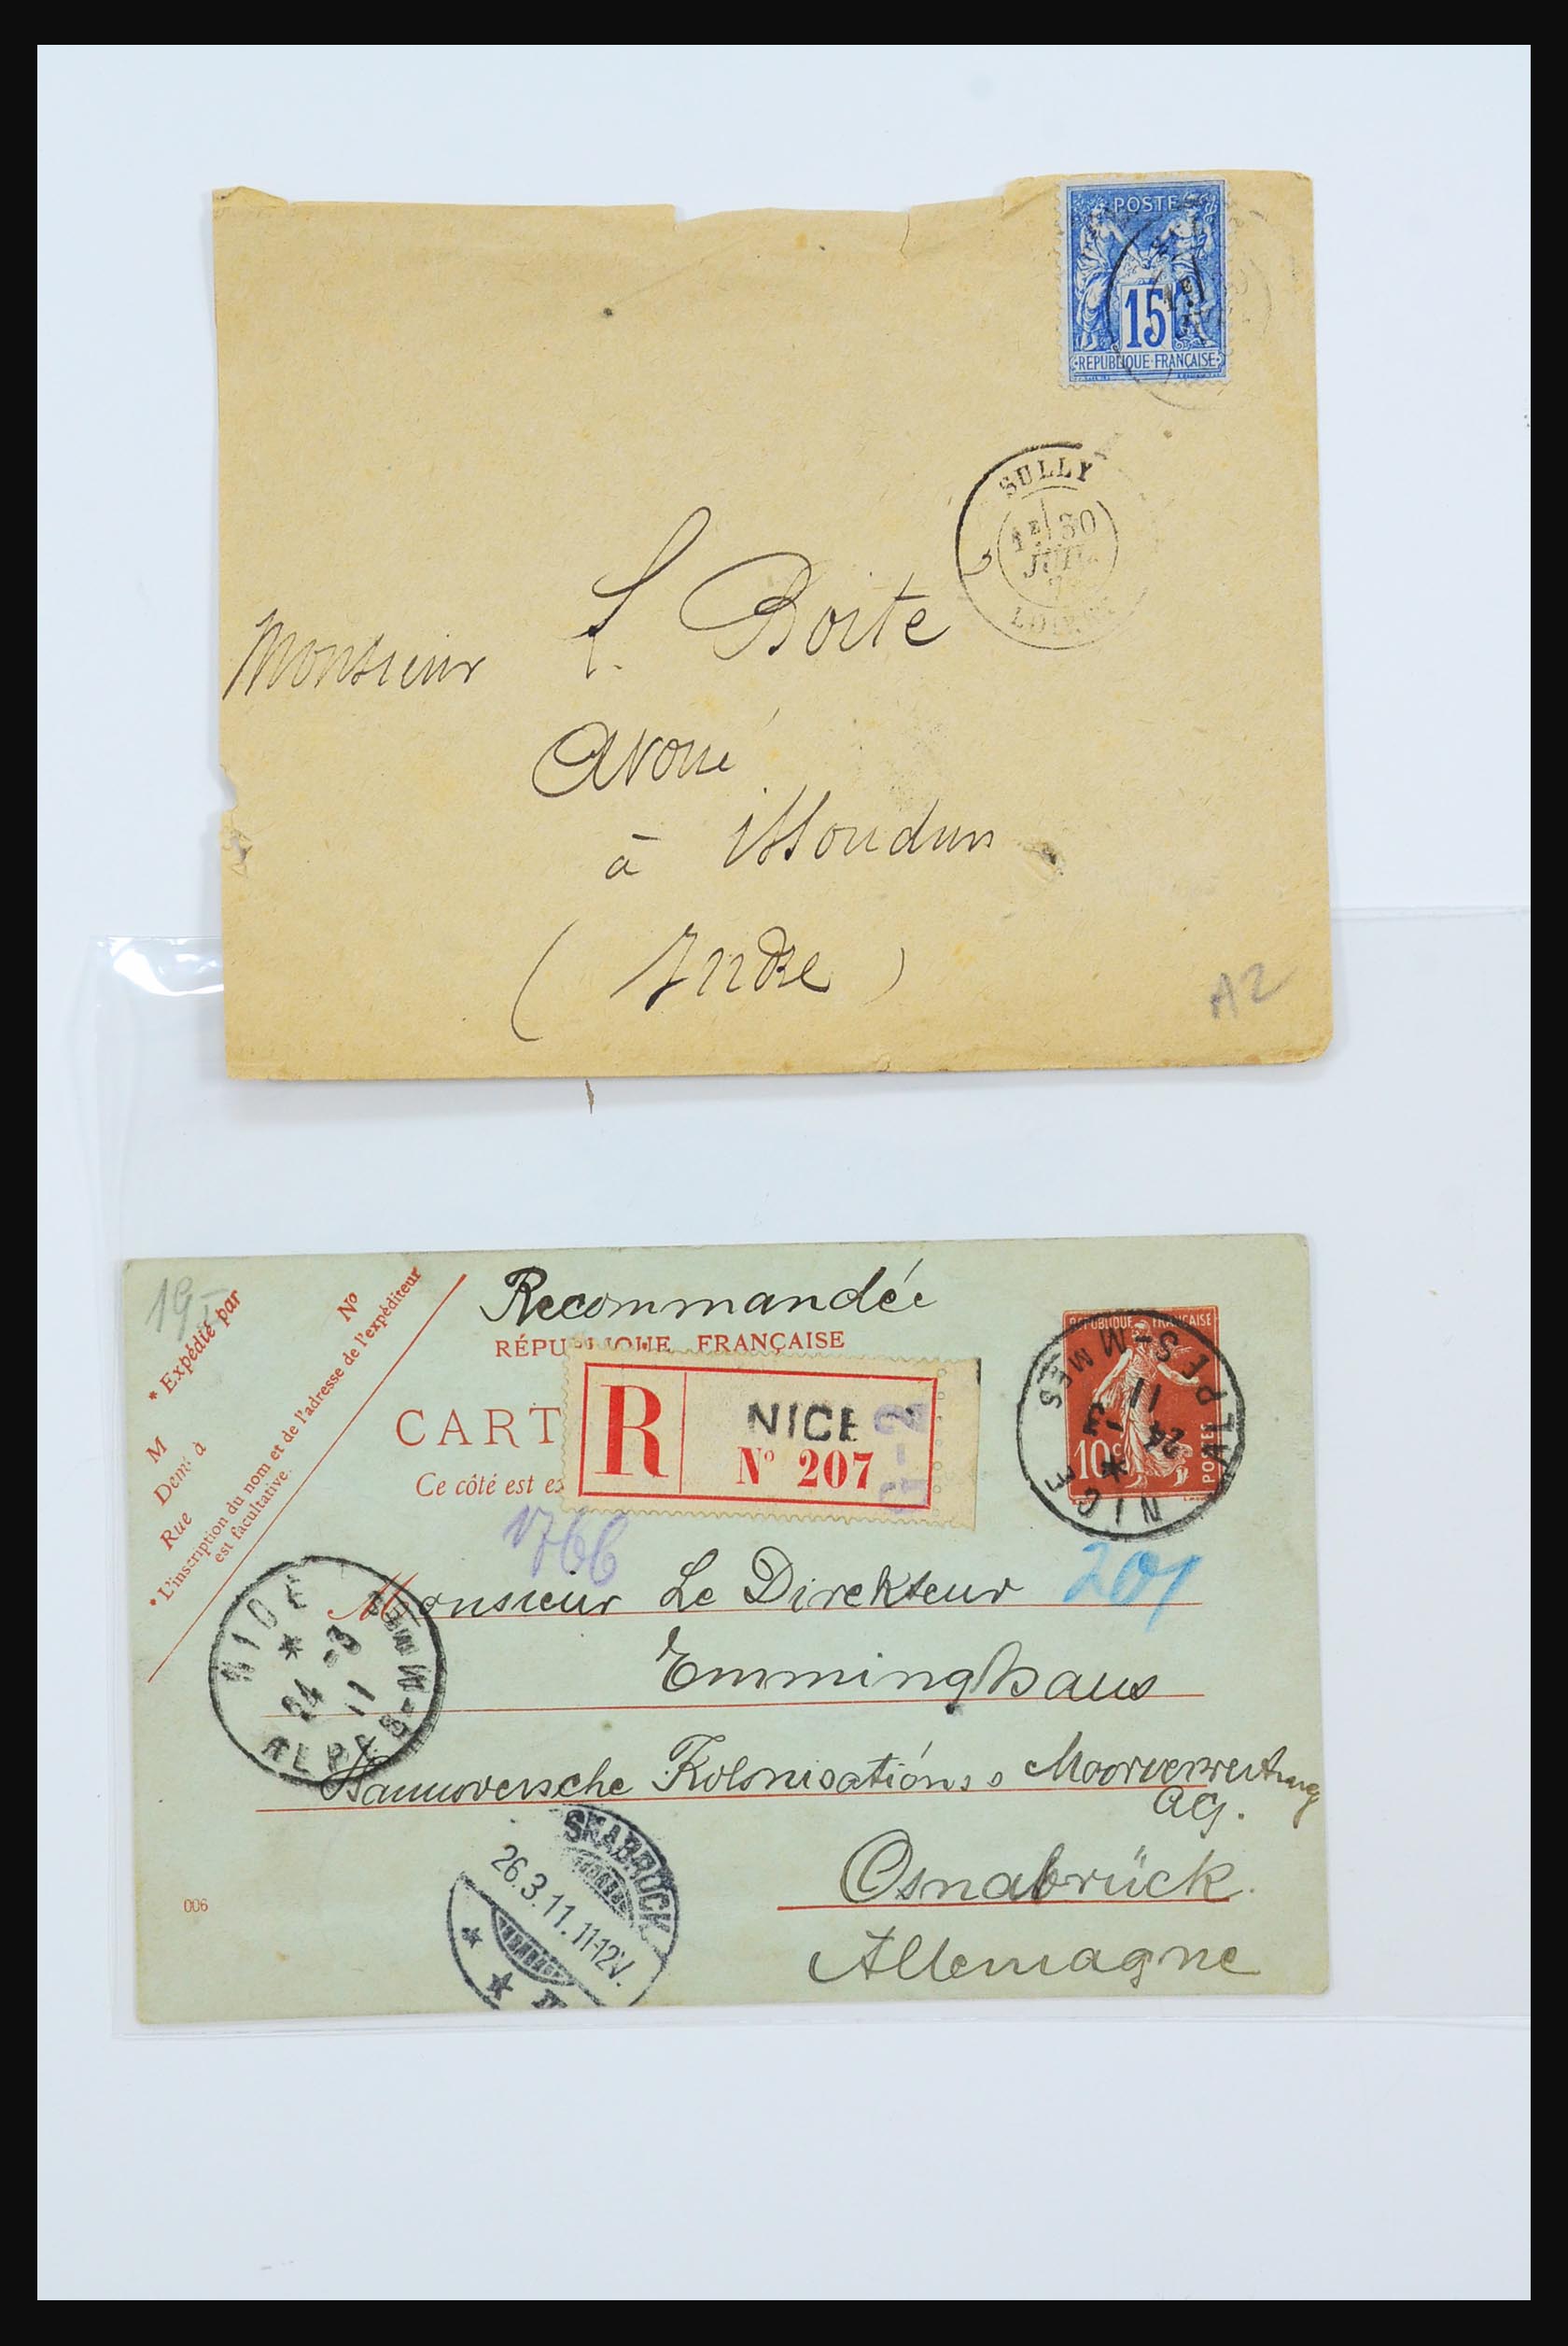 POSTE
15
REPUBLIQUE FRANÇAISE
1E
SULLY
1E 30
JUIL.
LOIRET
Monsieur L. Boite
avoué
à issoudun
(Indre)
A2
19
* Expédié par
No
M
Demt à
Rue
* L'inscription du nom et de l'adresse de l'expéditeur
est facultative.
Recommandée
RÉPUBLIQUE FRANÇAISE
CART
Ce côté est ex
R
NICE
No 207
G-2
REPUBLIQUE FRANÇAISE
10c
POSTES
NICE * ALPES-MMES
24 -3
11
1766
201
Monsieur Le Direkteur
Emminghaus
Hannoversche Kolonisations Moorverwertung
AG.
Osnabrück.
Allemagne
NICE * ALPES-MMES
24 -3
11
SNABRÜCK
26.3.11.11-12V.
* *
006